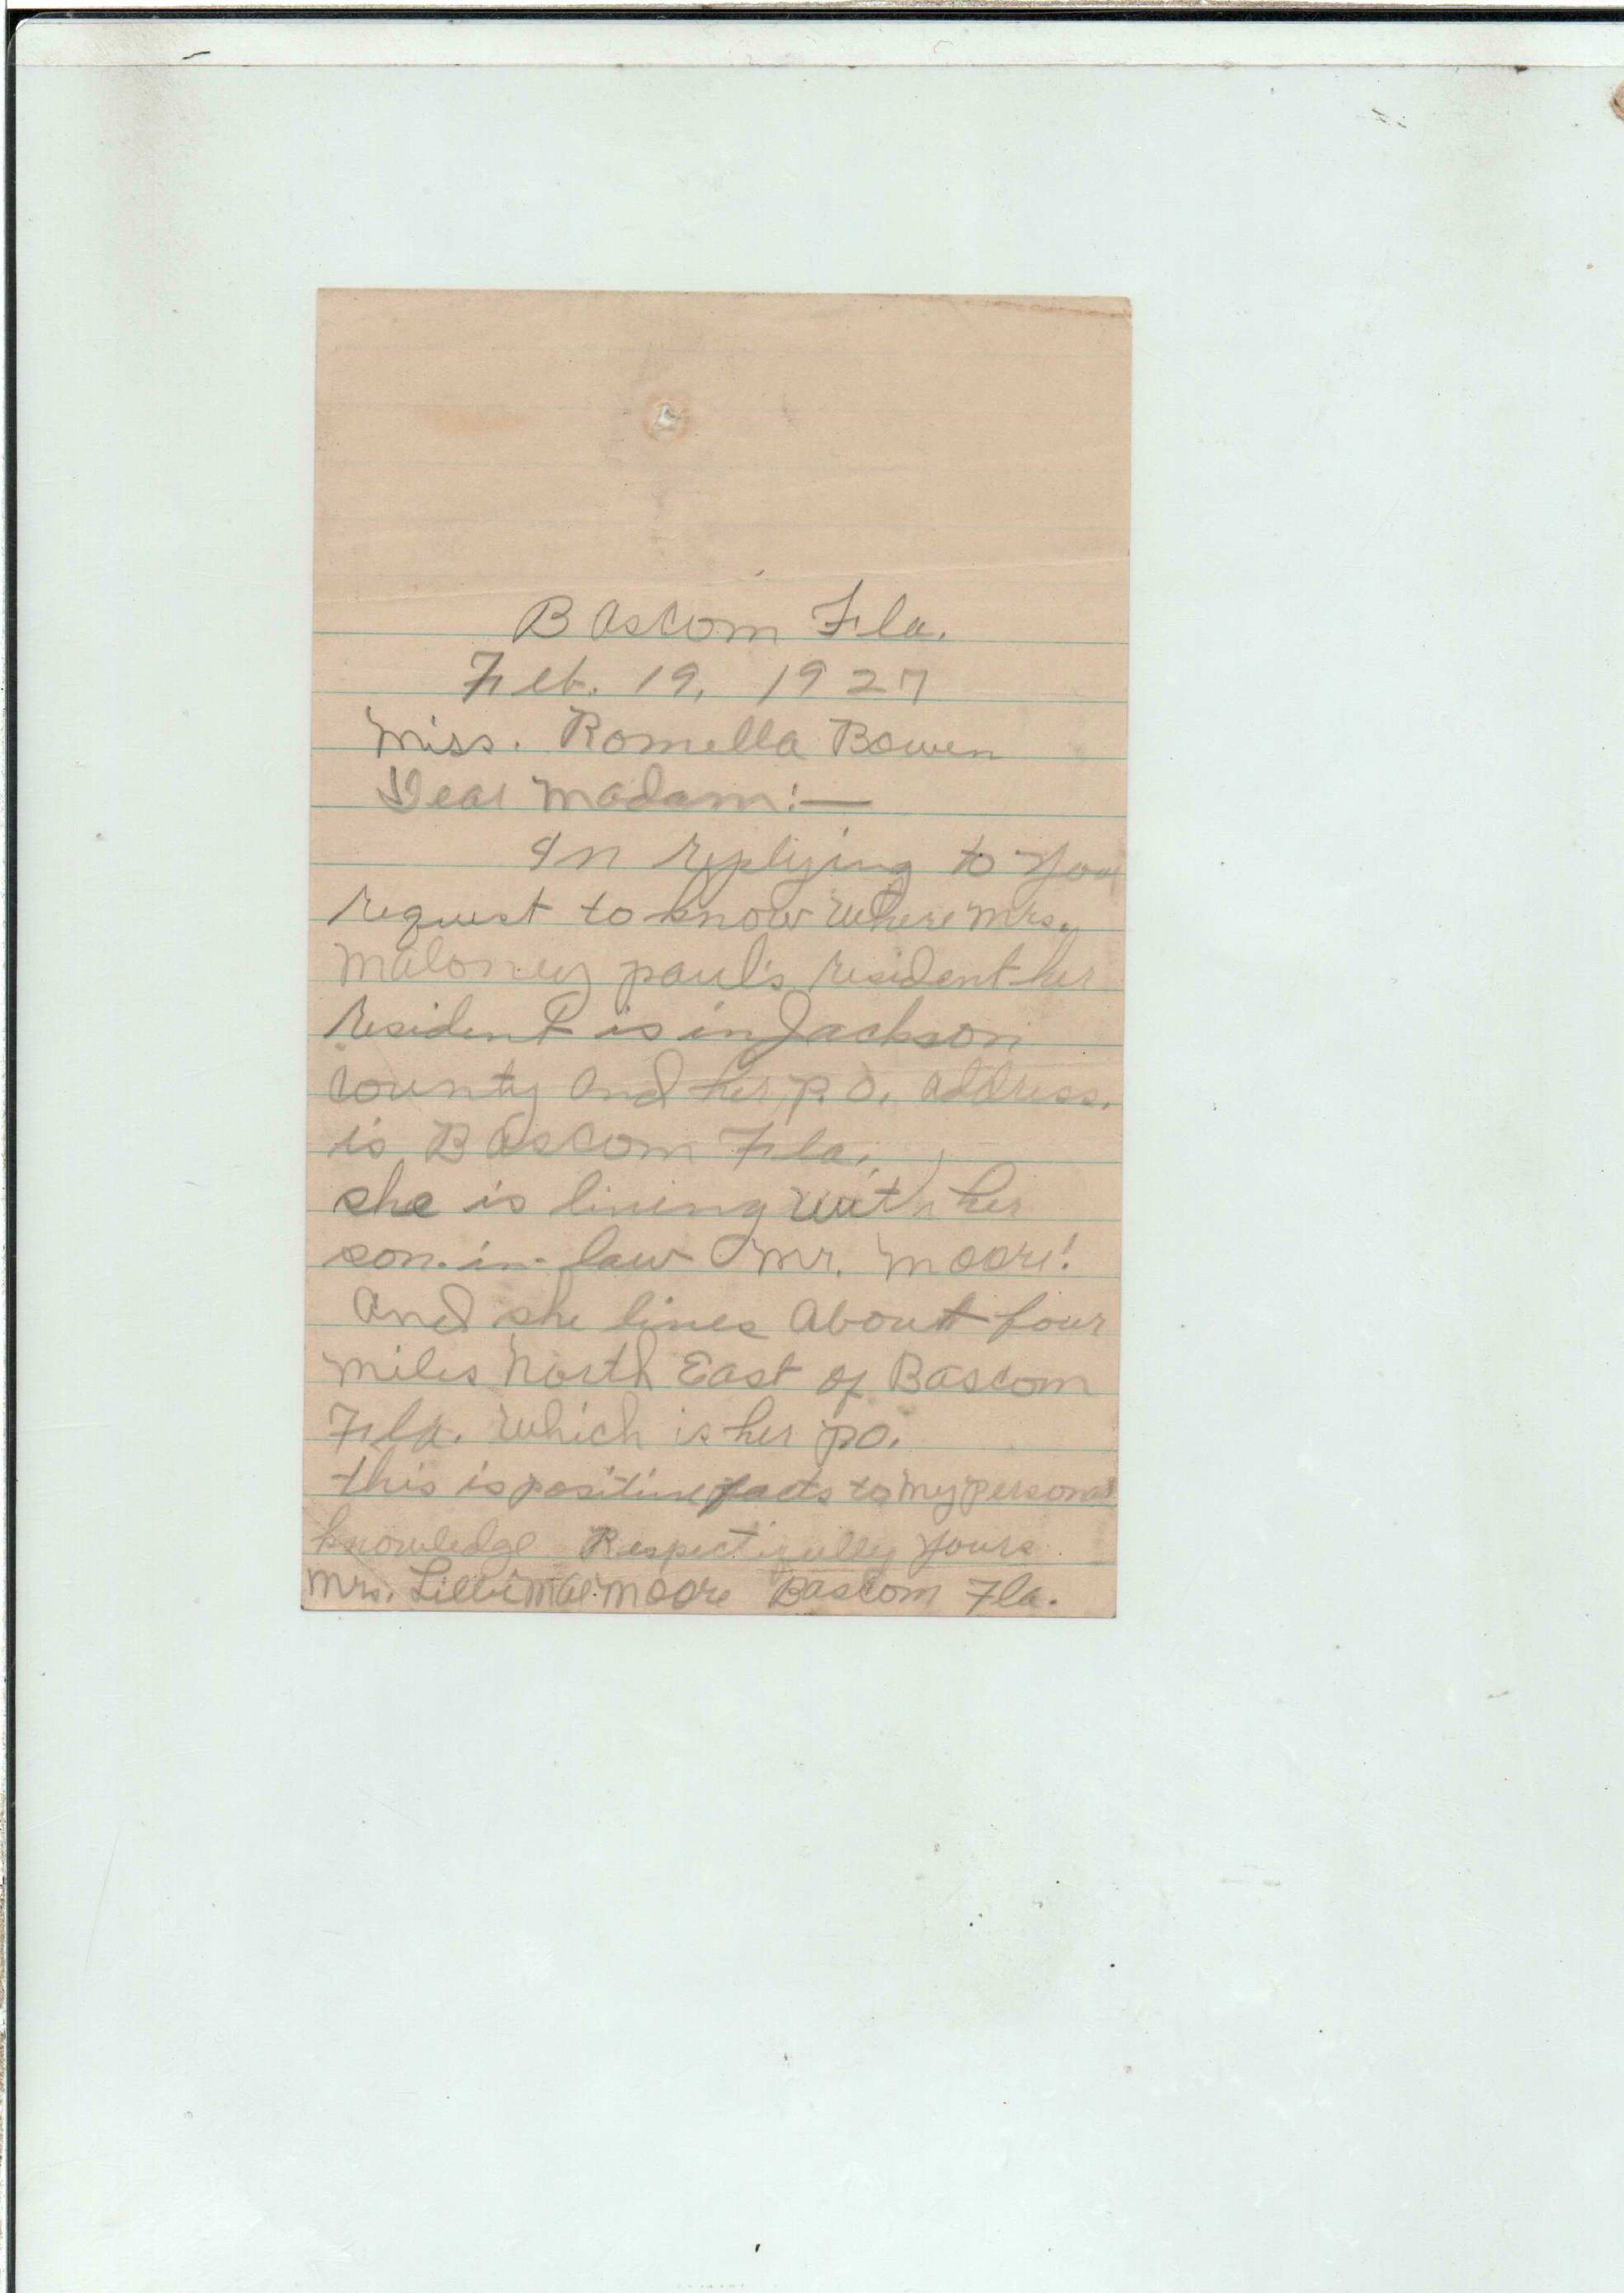 Bascom Fla.
Feb. 19, 1927
Miss. Romella Bowen
Dear Madam:—
In replying to your
request to know where Mrs.
Maloney paul's resident her
resident is in Jackson
County and her p.o. address.
is Bascom Fla.
she is living with her
son-in-law Mr. Moore!
And she lives about four
miles North East of Bascom
Fla. which is her po.
this is positive facts to my personal
knowledge Respectifully yours
Mrs. Lillie Mae Moore Bascom Fla.